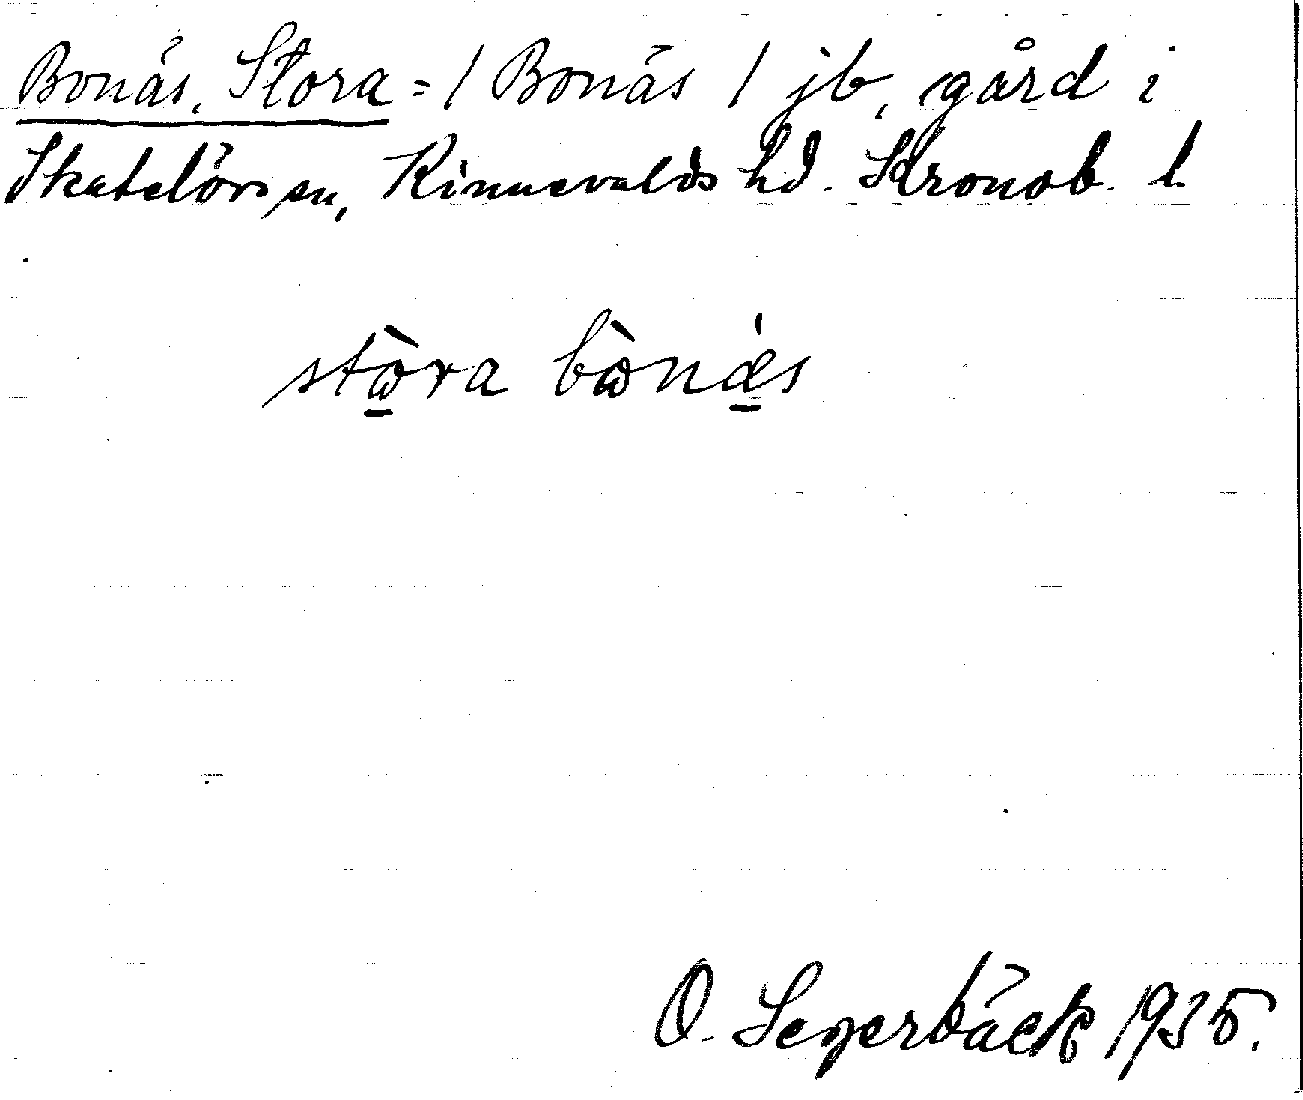 Bonäs, Stora = / Bonäs / jb, gård i
Skatelövs sn, Kinnevalds hd. Kronob. l.
stὼ̲ra bὼnǽ̲s
O. Segerbäck 1935.